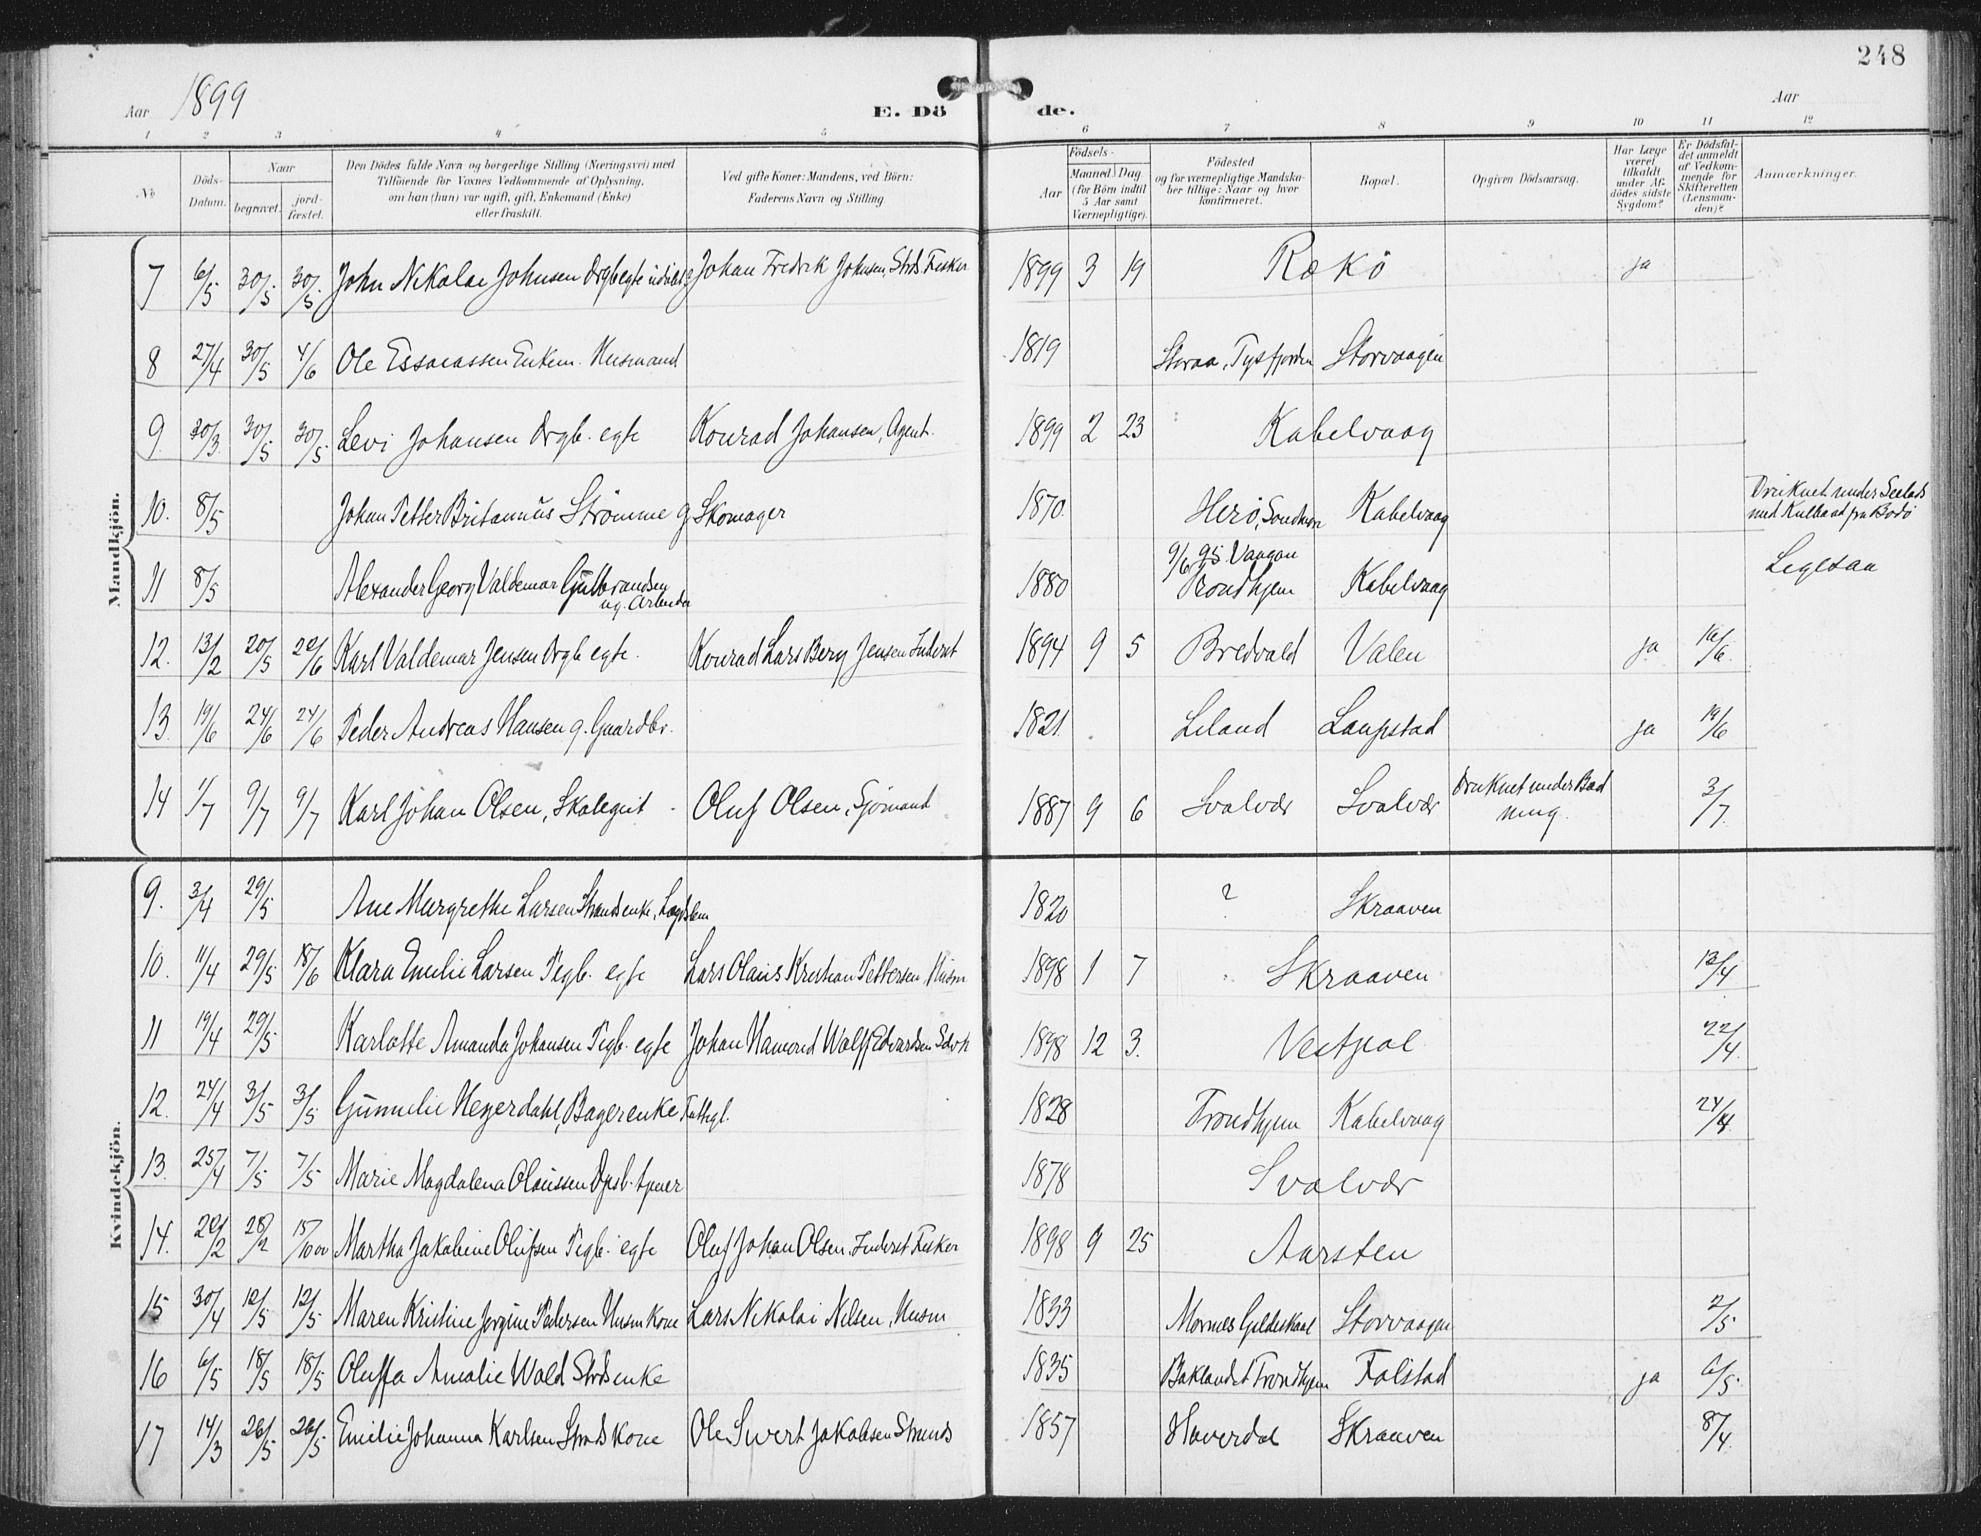 248
Aar 1899 E. Dö de. Aar
1 2 3 4 5 6 7 8 9 10 11 12
No
Döds-Datum.
Naar begravet. jord-fæstet.
Den Dödes fulde Navn og borgerlige Stilling (Næringsvei) med Tilföiende for Voxnes Vedkommende af Oplysning, om han (hun) var ugift, gift, Enkemand (Enke) eller fraskilt.
Ved gifte Koner: Mandens, ved Börn: Faderens Navn og Stilling
Födsels- Aar Maaned. Dag. (for Börn indtil 5 Aar samt Værnepligtige).
Födested og for værnepligtige Mandskaber tillige: Naar og hvor konfirmeret.
Bopæl.
Opgiven Dödsaarsag.
Har Læge været tilkaldt under Afdödes sidste Sygdom?
Er Dödsfaldet anmeldt af Vedkommende for Skifteretten (Lensmanden)?
Anmærkninger.
Mandkjön.
7 6/5 30/5 30/5 John Nikolai Johnsen Drgb egte Johan Fredrik Johnsen, Strds. Fisker 1899 3 19 Rækö ja
8 27/4 30/5 4/6 Ole Essaiassen Enkem. Husmand 1819 Storaa, Tysfjorden Storvaagen
9. 30/3 30/5 30/5 Levi Johansen Drgb. egte Konrad Johansen, Agent. 1899 2 23 Kabelvaag
10. 8/5 Johan Petter Britannus Strömme g. Skomager 1870. Herö, Sondmör Kabelvaag Druknet under Seilads med Kulbaad fra Bodö
11 8/5 Alexander Georg Valdemar Gulbrandsen ug. Arbeider 1880 9/6 95 Vaagan Trondhjem Kabelvaag Ligesaa
12. 13/2 20/5 20/6 Karl Valdemar Jensen Drgb egte. Konrad Lars Berg Jensen Inderst 1894 9 5 Bredvald Valen ja 16/6.
13 19/6 24/6 24/6 Peder Andreas Hansen g. Gaardbr. 1821. Liland Laupstad ja 19/6
14 1/7 9/7 9/7 Karl Johan Olsen, Skolegut Oluf Olsen, Sjömand 1887 9 6 Svolvær Svolvær Druknet under Badning. 3/7.
Kvindekjön.
9. 3/4 29/5 Ane Margrethe Larsen Strandsenke, Lægdslem 1820 ? Skraaven
10. 11/4 29/5 18/6 Klara Emilie Larsen Pigb. egte Lars Olaus Kristian Pettersen, Husm 1898 1 7 Skraaven 13/4
11 19/4 29/5 Karlotte Amanda Johansen Pigb. egte Johan Hamond Wolff Edvardsen 1898 12 3. Vestpol 22/4.
12. 24/4 3/5 3/5 Gunnelie Heyerdahl, Bagerenke Fattigl. 1828 Trondhjem Kabelvaag 24/4
13. 25/4 7/5 7/5 Marie Magdalena Olaussen 1878 Svolvær
14. 20/2 28/2 15/10 00 Martha Jakobine Olufsen Pigb. egte Oluf Johan Olsen. Inderst Fisker 1898 9 25 Aarsten
15 30/4 12/5 12/5 Maren Kristine Jorgine Pedersen Husm kone Lars Nikolai Nilsen, Husm 1833 Mornes Gildeskaal Storvaagen 2/5
16 6/5 18/5 18/5 Oluffa Amalie Wold Strdsenke 1835 Baklandet Trondhjem Folstad ja 6/5.
17 14/3 26/5 26/5 Emilie Johanna Karlsen Strds kone Ole Sivert Jakobsen Strands 1857 Haverdal Skraaven 8/4.